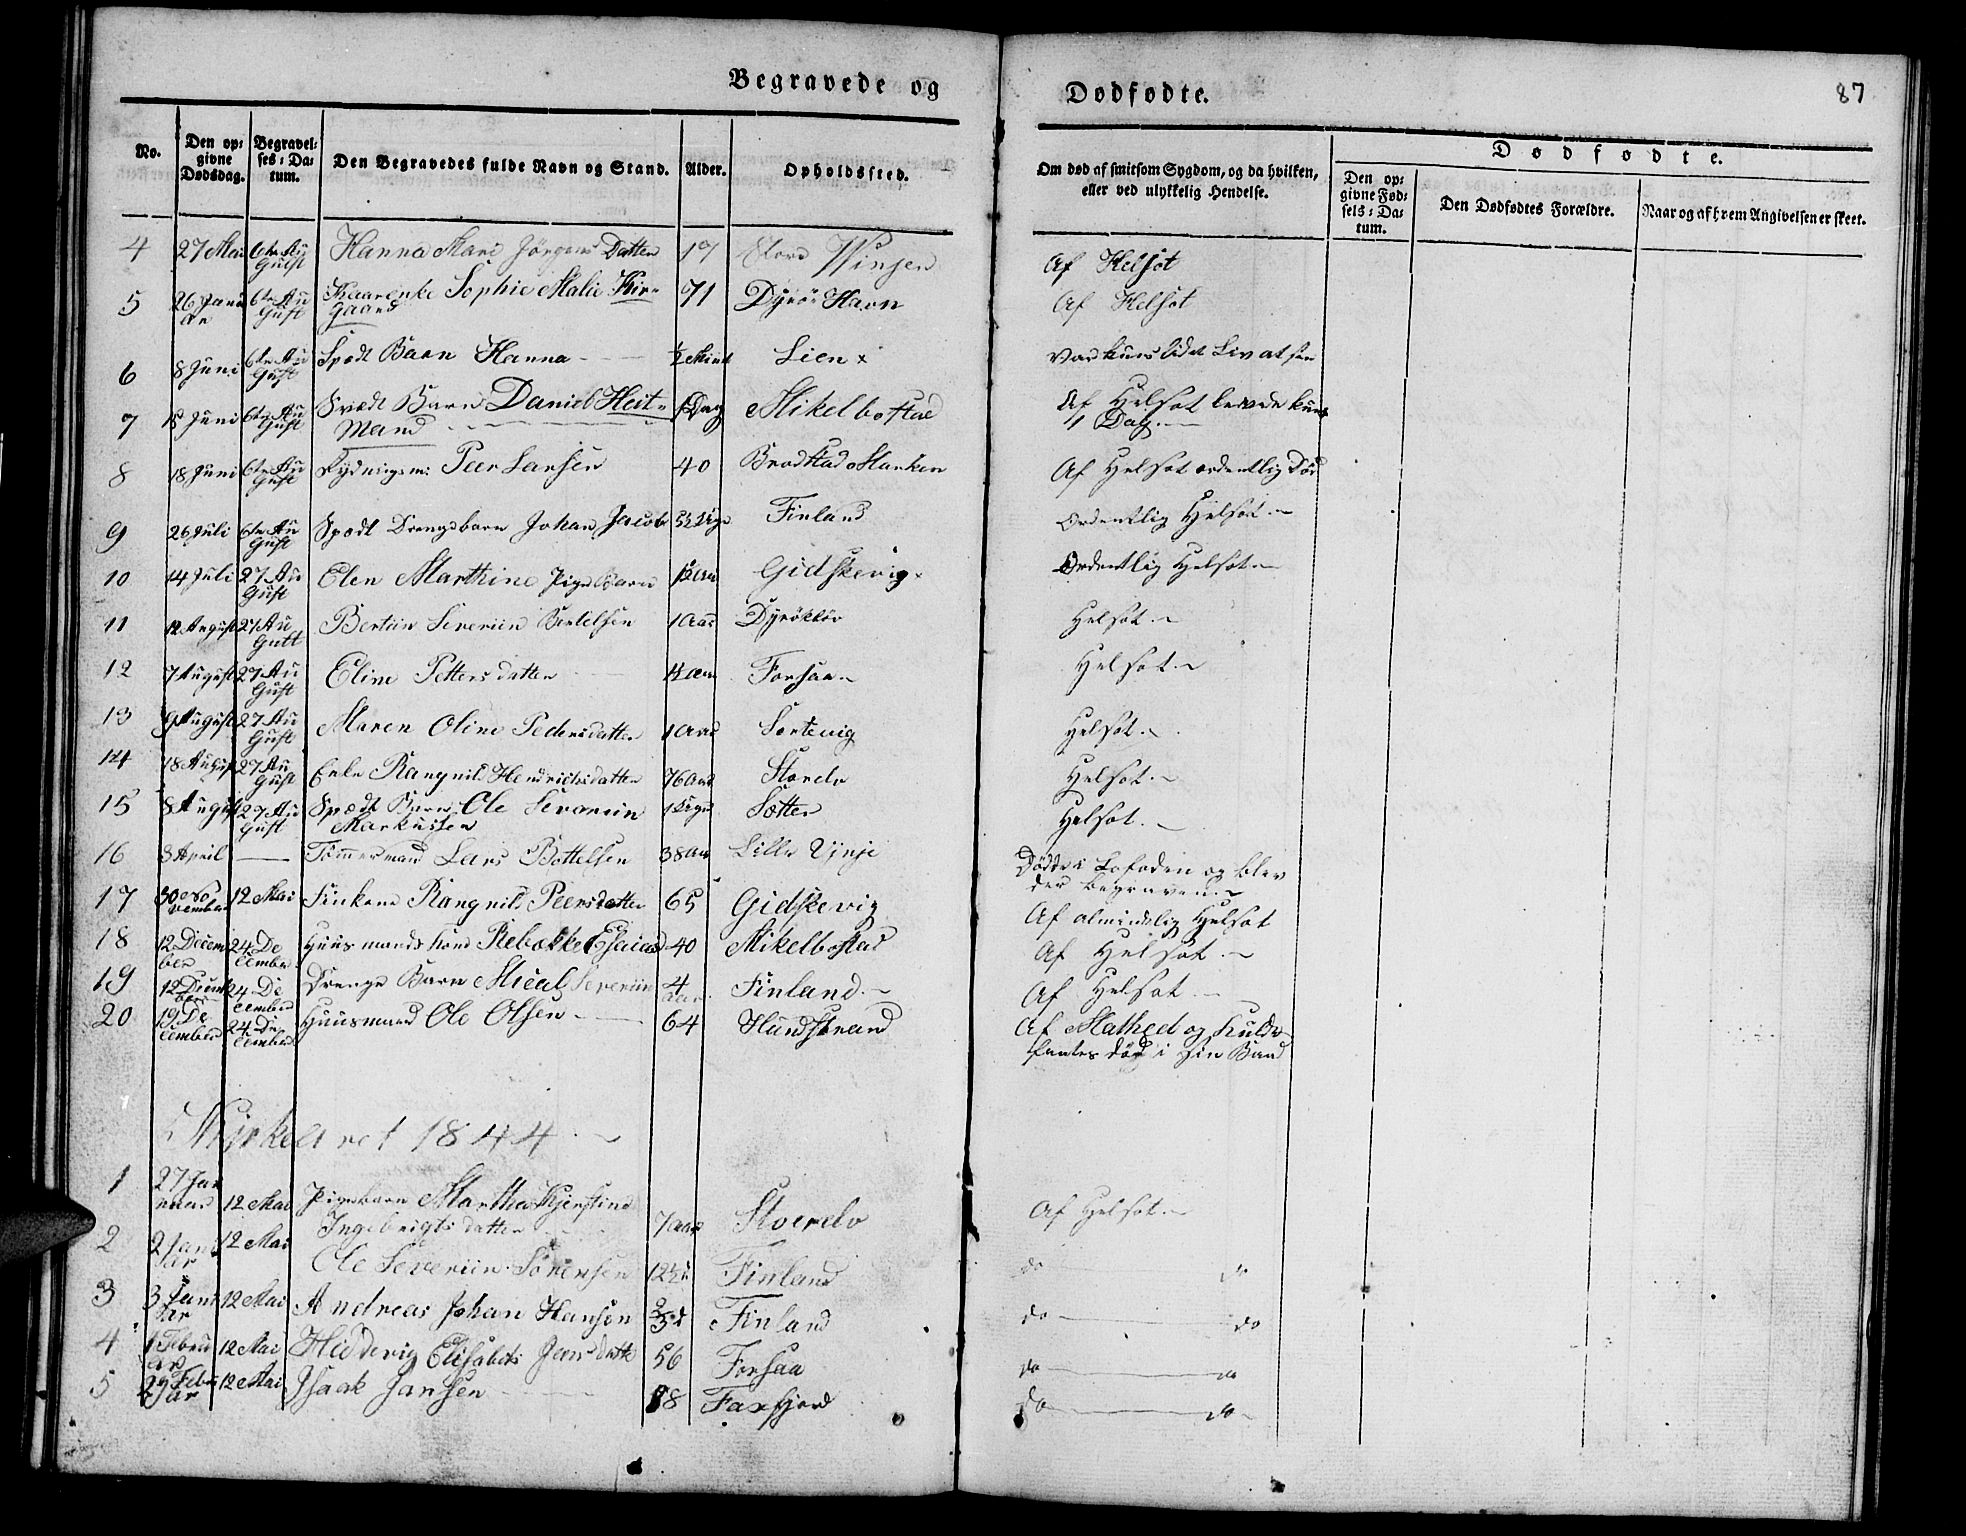 Begravede og Dødfødte.
87
No.
Den opgivne Dødsdag.
Begravelses-Datum.
Den Begravedes fulde Navn og Stand.
Alder.
Opholdssted.
Om død af smitsom Sygdom, og da hvilken, eller ved ulykkelig Hendelse.
Dødfødte.
Den opgivne Fødsels-Datum.
Den Dødfødtes Forældre.
Naar og af hvem Angivelsen er skeet.
4 27 Mai 6te August Hanna Marie Jørgens Datter 17 Store Winjen Af Helsot
5 26 Januar 6te August Sophie Malie Kirgaard 71 Dyrø Havn Af Helsot
6 8 Juni 6te August Spædt Barn Hanna ½ Lien x
7 18 Juni 6te August Spædt Barn Daniel Heitmand 1 Dag Mikelbostad Af Helsot levede kun 1 Dag
8 18 Juni 6te August Peer Larsen 40 Af Helsot ordentlig Død
9 26 Juli 6te August Spædt Drengebarn Johan Jacob Finland Ordentlig Helsot
10 14 Juli 27 August Elen Marthine Pige Barn Gidskevig x Ordentlig Helsot
11 12 August 27 August Severiin Bertelsen 1 Aar Dyrøkløv Helsot
12 7 August 27 August Eline Petters datter Forsaa Helsot
13 9 August 27 August Maren Oline Pedersdatter 1 Aar Sørtevig Helsot
14 18 August 27 August Enke Rangnild Hendrichsdatter 76 Aar Storelv Helsot
15 8 August 27 August Spædt Barn Ole Severiin Markussen Sætter Helsot
16 3 April — Tømmermand Lars Bottelsen 38 Aar Lille Vinje Døde i Lofoden og blev der begraven
17 30 November 12 Mai Rangnild Peersdatter 65 Gidskevig Af almindelig Helsot
18 12 December 24 December Huusmands kone Rebækka Esaias 40 Mikelbostad Af Helsot
19 12 December 24 December Drenge Barn Mical Severiin 4 Aar Finland Af Helsot
20 19 December 24 December Huusmand Ole Olsen 64 Hundstrand Af og Kulde fantes død i sin Baad
Kirkeaaret 1844
1 27 Januar 12 Mai Pigebarn Martha Kjerstina Ingebrigts datter 7 Aar Storelv Af Helsot
2 2 Januar 12 Mai Ole Severiin Sørensen 12½ Finland do do
3 3 Januar 12 Mai Andreas Johan Hansen Finland do do
4 1 Februar 12 Mai Hedevig Elisabeth Jens datter 56 Forsaa do do
5 24 Februar 12 Mai Isaak Jansen Faxfjord do do